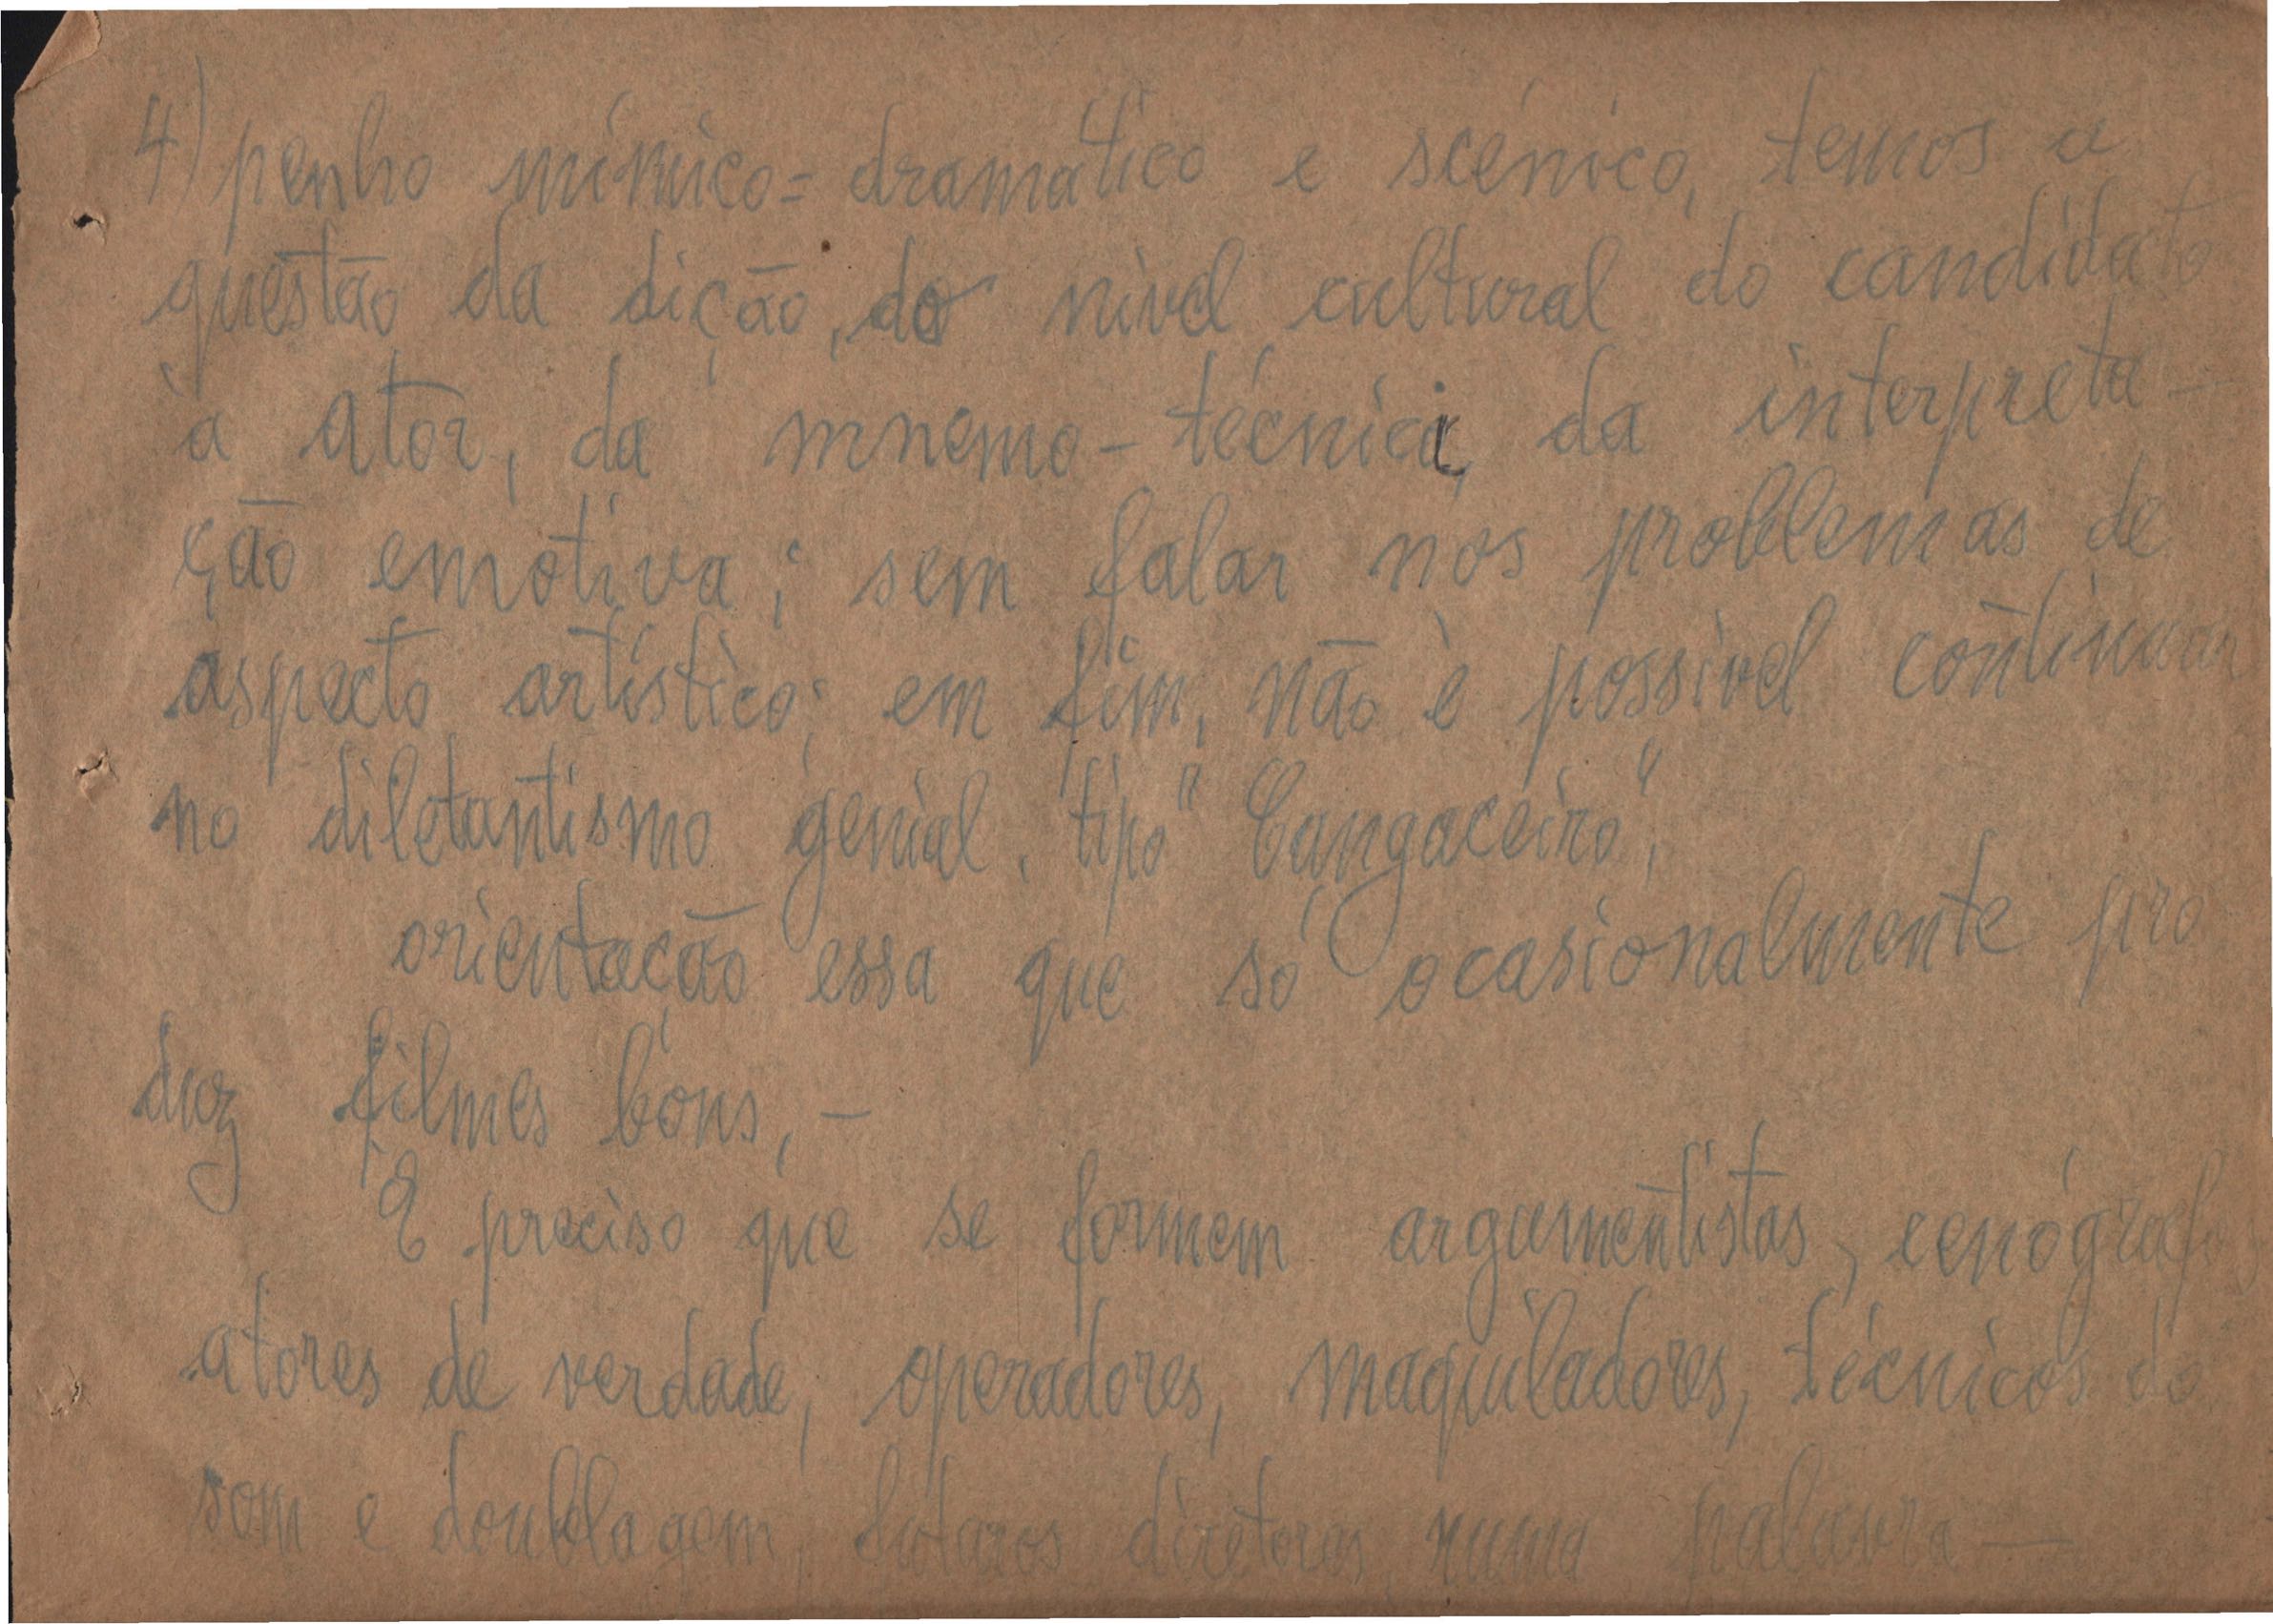 4) penho mímico=dramático e scénico, temos a
questão da dição, do nível cultural do candidato
à ator, da mnemo-técnica, da interpreta-
ção emotiva; sem falar nos problemas de
aspecto artístico; em fim, não è possível continuar
no diletantismo genial, tipo "Cangaceiro",
orientação essa que só ocasionalmente pro
duz filmes bons, -
È preciso que se formem argumentistas, cenógrafos
atores de verdade, operadores, maquiladores, técnicos do
som e doublagem, futuros diretores, numa palavra —